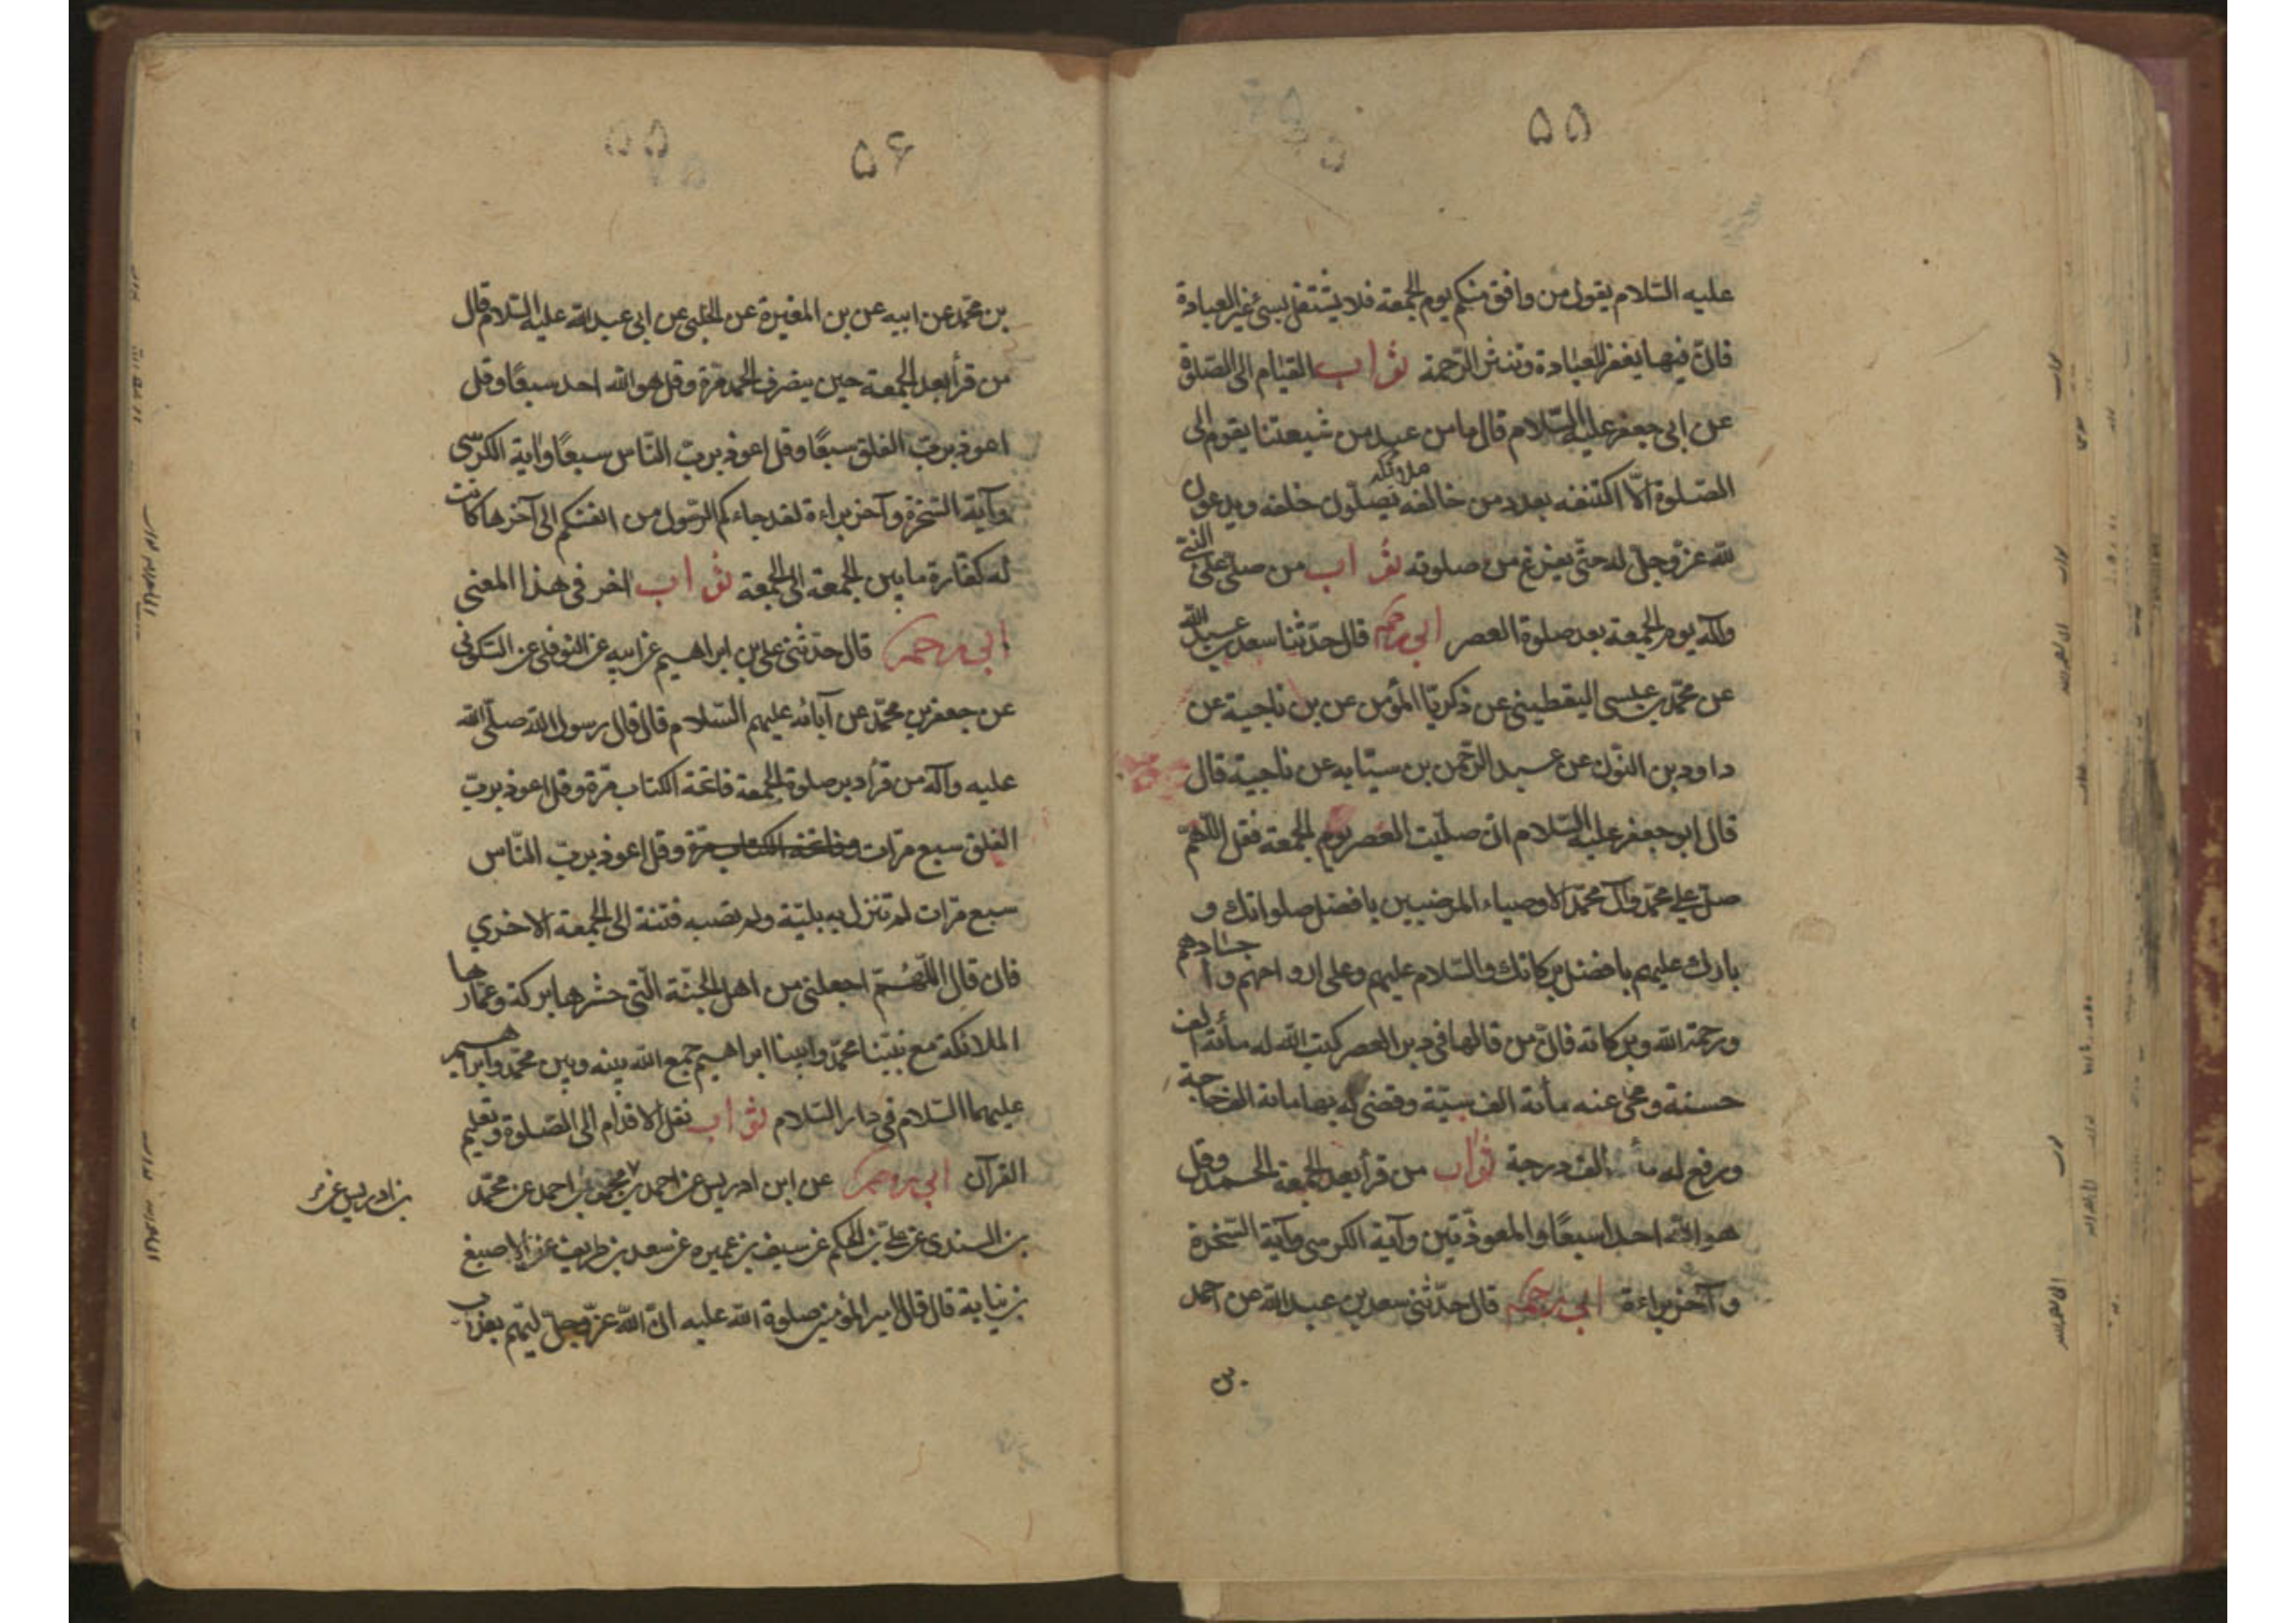 ۵۵
عليه السّلام يقول من وافق منكم يوم الجمعة فلا يشتغل بشئ غير العبادة
فانّ فيها يغفر للعبادة وتنشر الرّحمة ثواب القيام الى الصّلوة
عن ابى جعفر عليه السّلام قال ما من عبد من شيعتنا يقوم الى
الصّلوة الّا اكتنفه بعدد من خالفه ملائكه يصلّون خلفه ويدعون
للّه عزّ وجلّ له حتّى يفرغ من صلوته ثواب من صلّى على النّبى
وآله يوم الجمعة بعد صلوة العصر ابى رحمه قال حدّثنا سعد بن عبد اللّه
عن محمّد بن عيسى اليقطينى عن ذكريّا المؤمن عن بن ناجية عن
داود بن النّون عن عبد الرّحمن بن سيّابه عن ناجية قال
قال ابو جعفر عليه السّلام ان صلّيت العصر يوم الجمعة فقل اللّهمّ
صلّ على محمّد وآل محمّد الاوصياء المرضيين بافضل صلواتك و
بارك عليهم بافضل بركاتك والسّلام عليهم وعلى ارواحهم واجسادهم
ورحمة اللّه وبركاته فانّ من قالها فى دبر العصر كتب اللّه له مأئة الف
حسنة ومحى عنه مأئة الف سيّئة وقضى له بها مائة الف حاجة
ورفع له مأئة الف درجة ثواب من قرأ بعد الجمعة الحمد وقل
هو اللّه احد سبعًا والمعوذّتين وآية الكرسى وآية السّخرة
وآخر براءة ابى رحمه قال حدّثنى سعد بن عبد اللّه عن احمد
بن
۵۶
بن محمّد عن ابيه عن بن المغيرة عن الحلبى عن ابى عبد اللّه عليه السّلام قال
من قرأ بعد الجمعة حين ينصرف الحمد مرّة وقل هو اللّه احد سبعًا وقل
اعوذ بربّ الفلق سبعًا وقل اعوذ بربّ النّاس سبعًا وآية الكرسى
وآية السّخرة وآخر براءة لقد جاءكم الرّسول من انفسكم الى آخرها كانت
له كفّارة ما بين الجمعة الى الجمعة ثواب آخر فى هذا المعنى
ابى رحمه قال حدّثنى على بن ابراهيم عن ابيه عن النّوفلى عن السّكونى
عن جعفر بن محمّد عن آبائه عليهم السّلام قال قال رسول اللّه صلّى اللّه
عليه وآله من قرأ دبر صلوة الجمعة فاتحة الكتاب مرّة وقل اعوذ بربّ
الفلق سبع مرّات وفاتحة الكتاب مرّة وقل اعوذ بربّ النّاس
سبع مرّات لم تنزل به بليّة ولم تصبه فتنة الى الجمعة الاخرى
فان قال اللّهمّ اجعلنى من اهل الجنّة الّتى حشوها بركة وعمّارها
الملائكة مع نبيّنا محمّد وابينا ابراهيم جمع اللّه بينه وبين محمّد وابراهيم
عليهما السّلام فى دار السّلام ثواب نقل الاقدام الى الصّلوة وتعليم
القرآن ابى رحمه عن ابن ادريس عن احمد بن محمد بن احمد عن محمّد
بن ادريس عن
بن السندى عن علىّ بن الحكم عن سيف بن عميره عن سعد بن طريف عن الاصبغ
بن نباتة قال قال امير المؤمنين صلوة اللّه عليه انّ اللّه عزّ وجلّ ليهمّ بعذاب